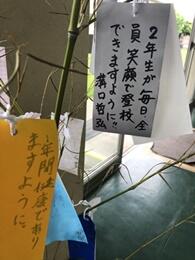 2年生が毎日、全
員笑顔で登校
できますように!!
溝口哲弘
年間健康であり
ますように。